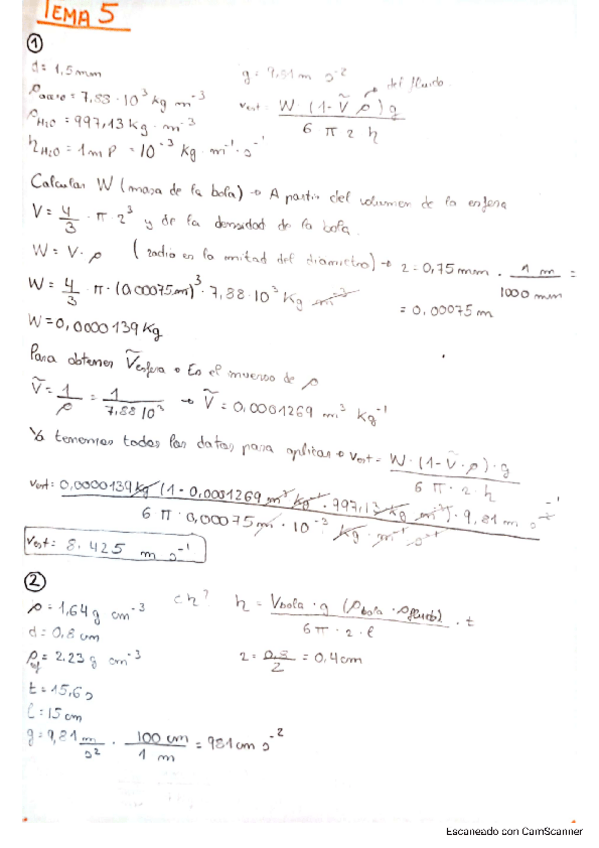 TEMA 5
①
d = 1,5 mm
ρacero = 7,88 · 10³ kg m⁻³
ρH₂O = 997,13 kg · m⁻³
ηH₂O = 1 m P = 10⁻³ kg · m⁻¹ · s⁻¹
g = 9,81 m s⁻²
→ del fluido
vest = W · (1 - Ṽ ρ) g / 6 π r η
Calcular W (masa de la bola) → A partir del volumen de la esfera
V = 4/3 · π r³ y de la densidad de la bola.
W = V · ρ ( radio es la mitad del diametro) → r = 0,75 mm · 1 m / 1000 mm =
= 0,00075 m
W = 4/3 · π · (0,00075 m)³ · 7,88 · 10³ kg m⁻³
W = 0,0000139 kg
Para obtener Ṽesfera → Es el inverso de ρ
Ṽ = 1/ρ = 1/7,88 10³ → Ṽ = 0,0001269 m³ kg⁻¹
Ya tenemos todos los datos para aplicar → vest = W · (1 - Ṽ · ρ) · g / 6 π · r · η
vest = 0,0000139 kg (1 - 0,0001269 m³ kg⁻¹ · 997,13 kg m⁻³) · 9,81 m s⁻² / 6 π · 0,00075 m · 10⁻³ kg · m⁻¹ s⁻¹
vest = 8.425 m s⁻¹
②
ρ = 1,64 g cm⁻³
d = 0,8 cm
ρ = 2.23 g cm⁻³
t = 15,6 s
l = 15 cm
g = 9,81 m/s² · 100 cm / 1 m = 981 cm s⁻²
c η?
η = Vbola · g (ρbola - ρfluido) / 6 π · r · l · t
r = 0,8/2 = 0,4 cm
Escaneado con CamScanner